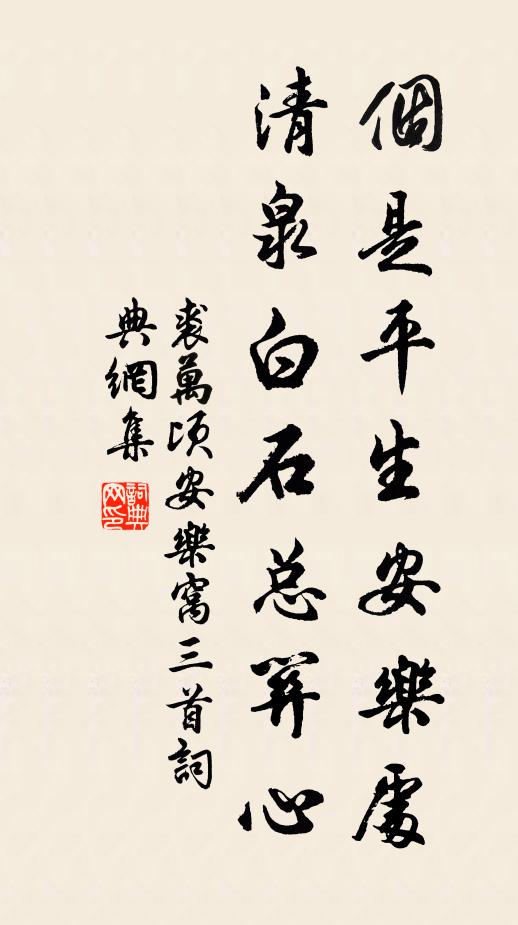 個是平生安樂處
清泉白石总筭心
裘萬頃安樂窩三首詞
典網集
詞典
网印